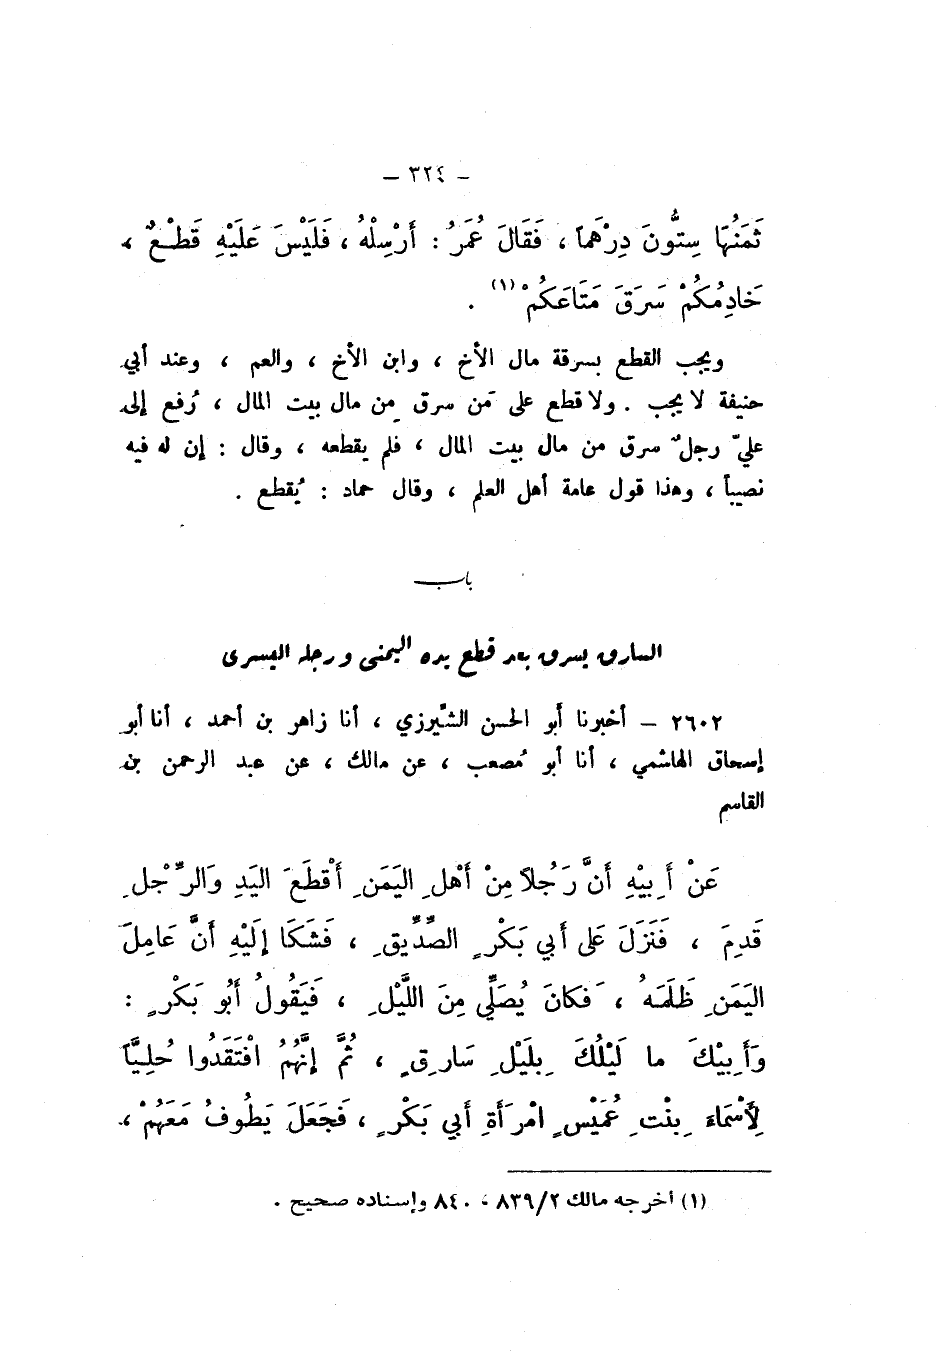 – ٣٢٤ –
ثَمَنُهَا سِتُّونَ دِرْهَماً ، فَقَالَ عُمَرُ : أَرْسِلْهُ ، فَلَيْسَ عَلَيْهِ قَطْعٌ ،
خَادِمُكُمْ سَرَقَ مَتَاعَكُمْ (١) .
ويجب القطع بسرقة مال الأخ ، وابن الأخ ، والعم ، وعند أبي
حنيفة لا يجب . ولا قطع على مَن سرق مِن مال بيت المال ، رُفع إلى
عليّ رجلٌ سرق من مال بيت المال ، فلم يقطعه ، وقال : إن له فيه
نصيباً ، وهذا قول عامة أهل العلم ، وقال حماد : يُقطع .
باب
السارق يسرق بعد قطع يده اليمنى ورجله اليسرى
٢٦٠٢ – أخبرنا أبو الحسن الشّيرزي ، أنا زاهر بن أحمد ، أنا أبو
إسحاق الهاشمي ، أنا أبو مُصعب ، عن مالك ، عن عبد الرحمن بن
القاسم
عَنْ أَبِيْهِ أَنَّ رَجُلاً مِنْ أَهْلِ اليَمَنِ أَقْطَعَ اليَدِ وَالرِّجْلِ
قَدِمَ ، فَنَزَلَ عَلى أَبي بَكْرٍ الصِّدِّيقِ ، فَشَكَا إِلَيْهِ أَنَّ عَامِلَ
اليَمَنِ ظَلَمَهُ ، فَكانَ يُصَلِّي مِنَ اللَّيْلِ ، فَيَقُولُ أَبُو بَكْرٍ :
وَأَبِيْكَ ما لَيْلُكَ بِلَيْلِ سَارِقٍ ، ثُمَّ إِنَّهُمُ افْتَقَدُوا حُلِيَّاً
لِأَسْمَاءَ بِنْتِ عُمَيْسٍ امْرَأَةِ أَبي بَكْرٍ ، فَجَعَلَ يَطُوفُ مَعَهُمْ ،
(١) أخرجه مالك ٨٣٩/٢ ، ٨٤٠ وإسناده صحيح .